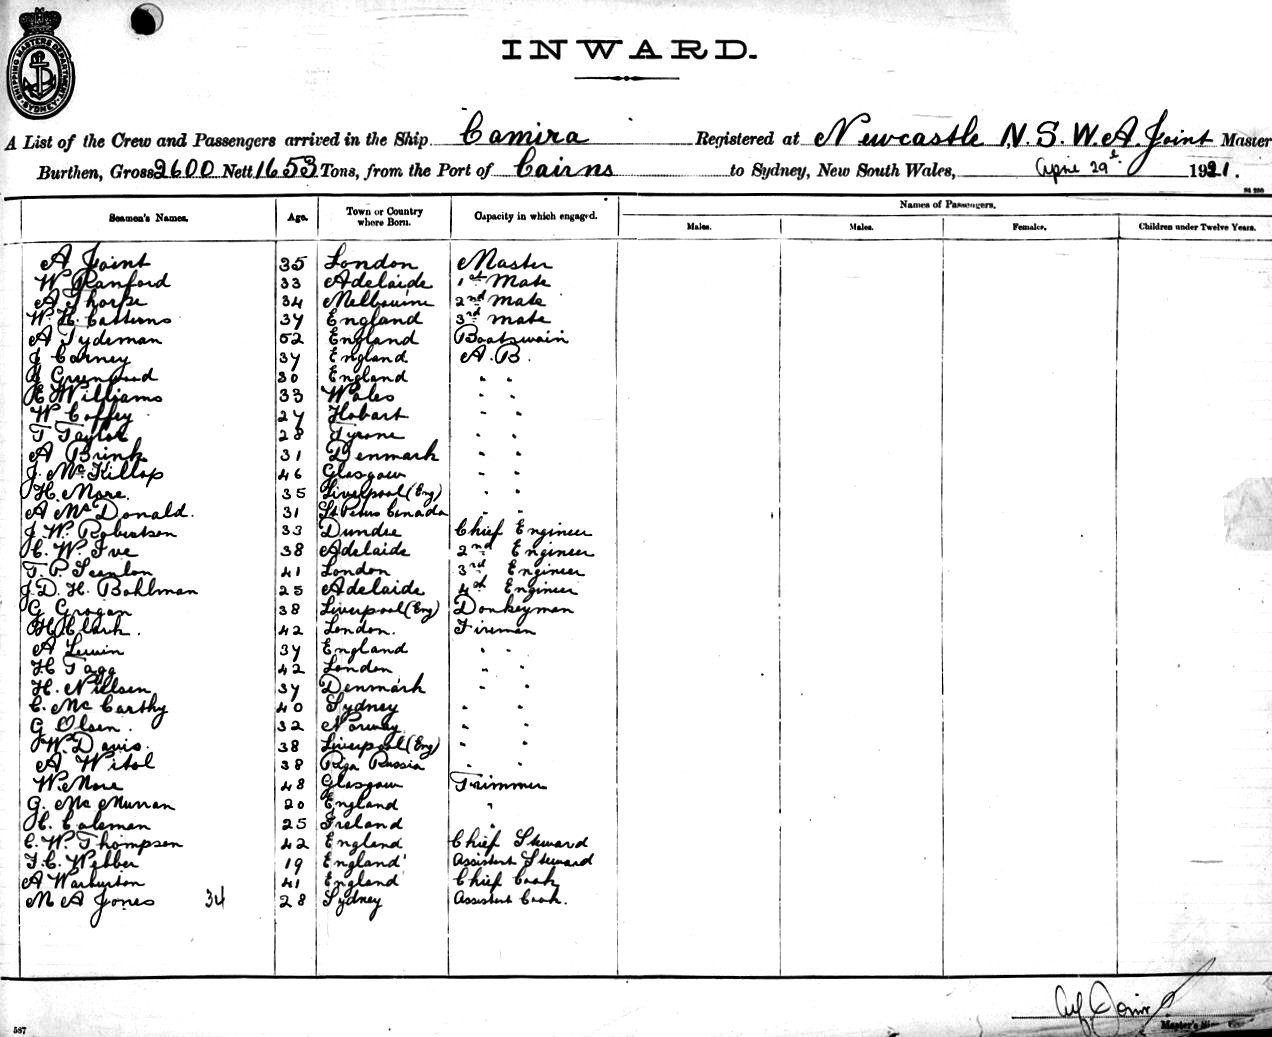 SHIPPING MASTERS DEPARTMENT SYDNEY
INWARD.
A List of the Crew and Passengers arrived in the Ship Camira Registered at Newcastle N.S.W. A Joint Master
Burthen, Gross 2600 Nett 1653 Tons, from the Port of Cairns to Sydney, New South Wales, April 29th 1921.
Seamen's Names. Age. Town or Country where Born. Capacity in which engaged. Names of Passengers.
Males. Males. Females. Children under Twelve Years.
A Joint 35 London Master
W Ranford 33 Adelaide 1st Mate
A Thorpe 34 Melbourne 2nd Mate
W. H. Catterns 37 England 3rd Mate
A Tydeman 52 England Boatswain
J Carney 37 England A.B.
30 England " "
E Williams 33 Wales " "
W Coffey 27 Hobart " "
T Taylor 28 Tyrone " "
A Brink 31 Denmark " "
J. McKillop 46 Glasgow " "
H. More. 35 Liverpool (Eng) " "
A McDonald. 31 Canada " "
J. W. Robertson 33 Dundee Chief Engineer
C. W. Ive 38 Adelaide 2nd Engineer
T. P. Scanlon 41 London 3rd Engineer
J. D. H. Bohlman 25 Adelaide 4th Engineer
G Grogan 38 Liverpool (Eng) Donkeyman
H Clark. 42 London. Fireman
A Lewin 37 England " "
H Tagg 42 London " "
H. Nillsen 37 Denmark " "
C. McCarthy 40 Sydney " "
G Olsen. 32 Norway " "
W. Davis. 38 Liverpool (Eng) " "
A Witol 38 Riga Russia " "
W. More 48 Glasgow Trimmer
G. McMurran 20 England "
H. Coleman 25 Ireland "
C. W. Thompson 42 England Chief Steward
F. C. Webber 19 England Assistent Steward
A Warburton 41 England Chief Cook
M A Jones 34 28 Sydney Assistent Cook.
Joint
Master's
587